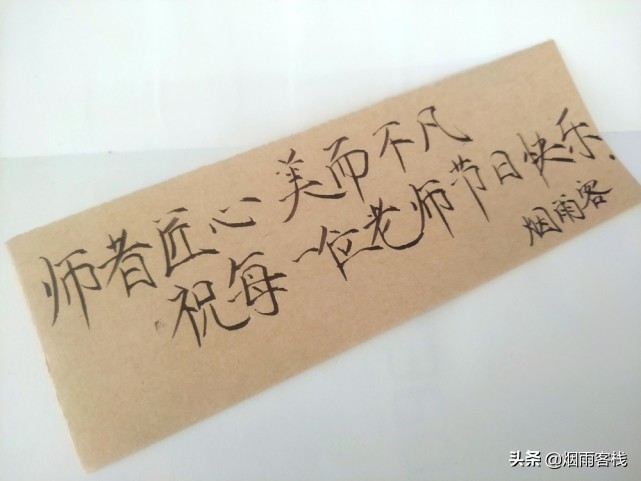 师者匠心 美而不凡
祝每一位老师节日快乐.
烟雨客
头条 @烟雨客栈